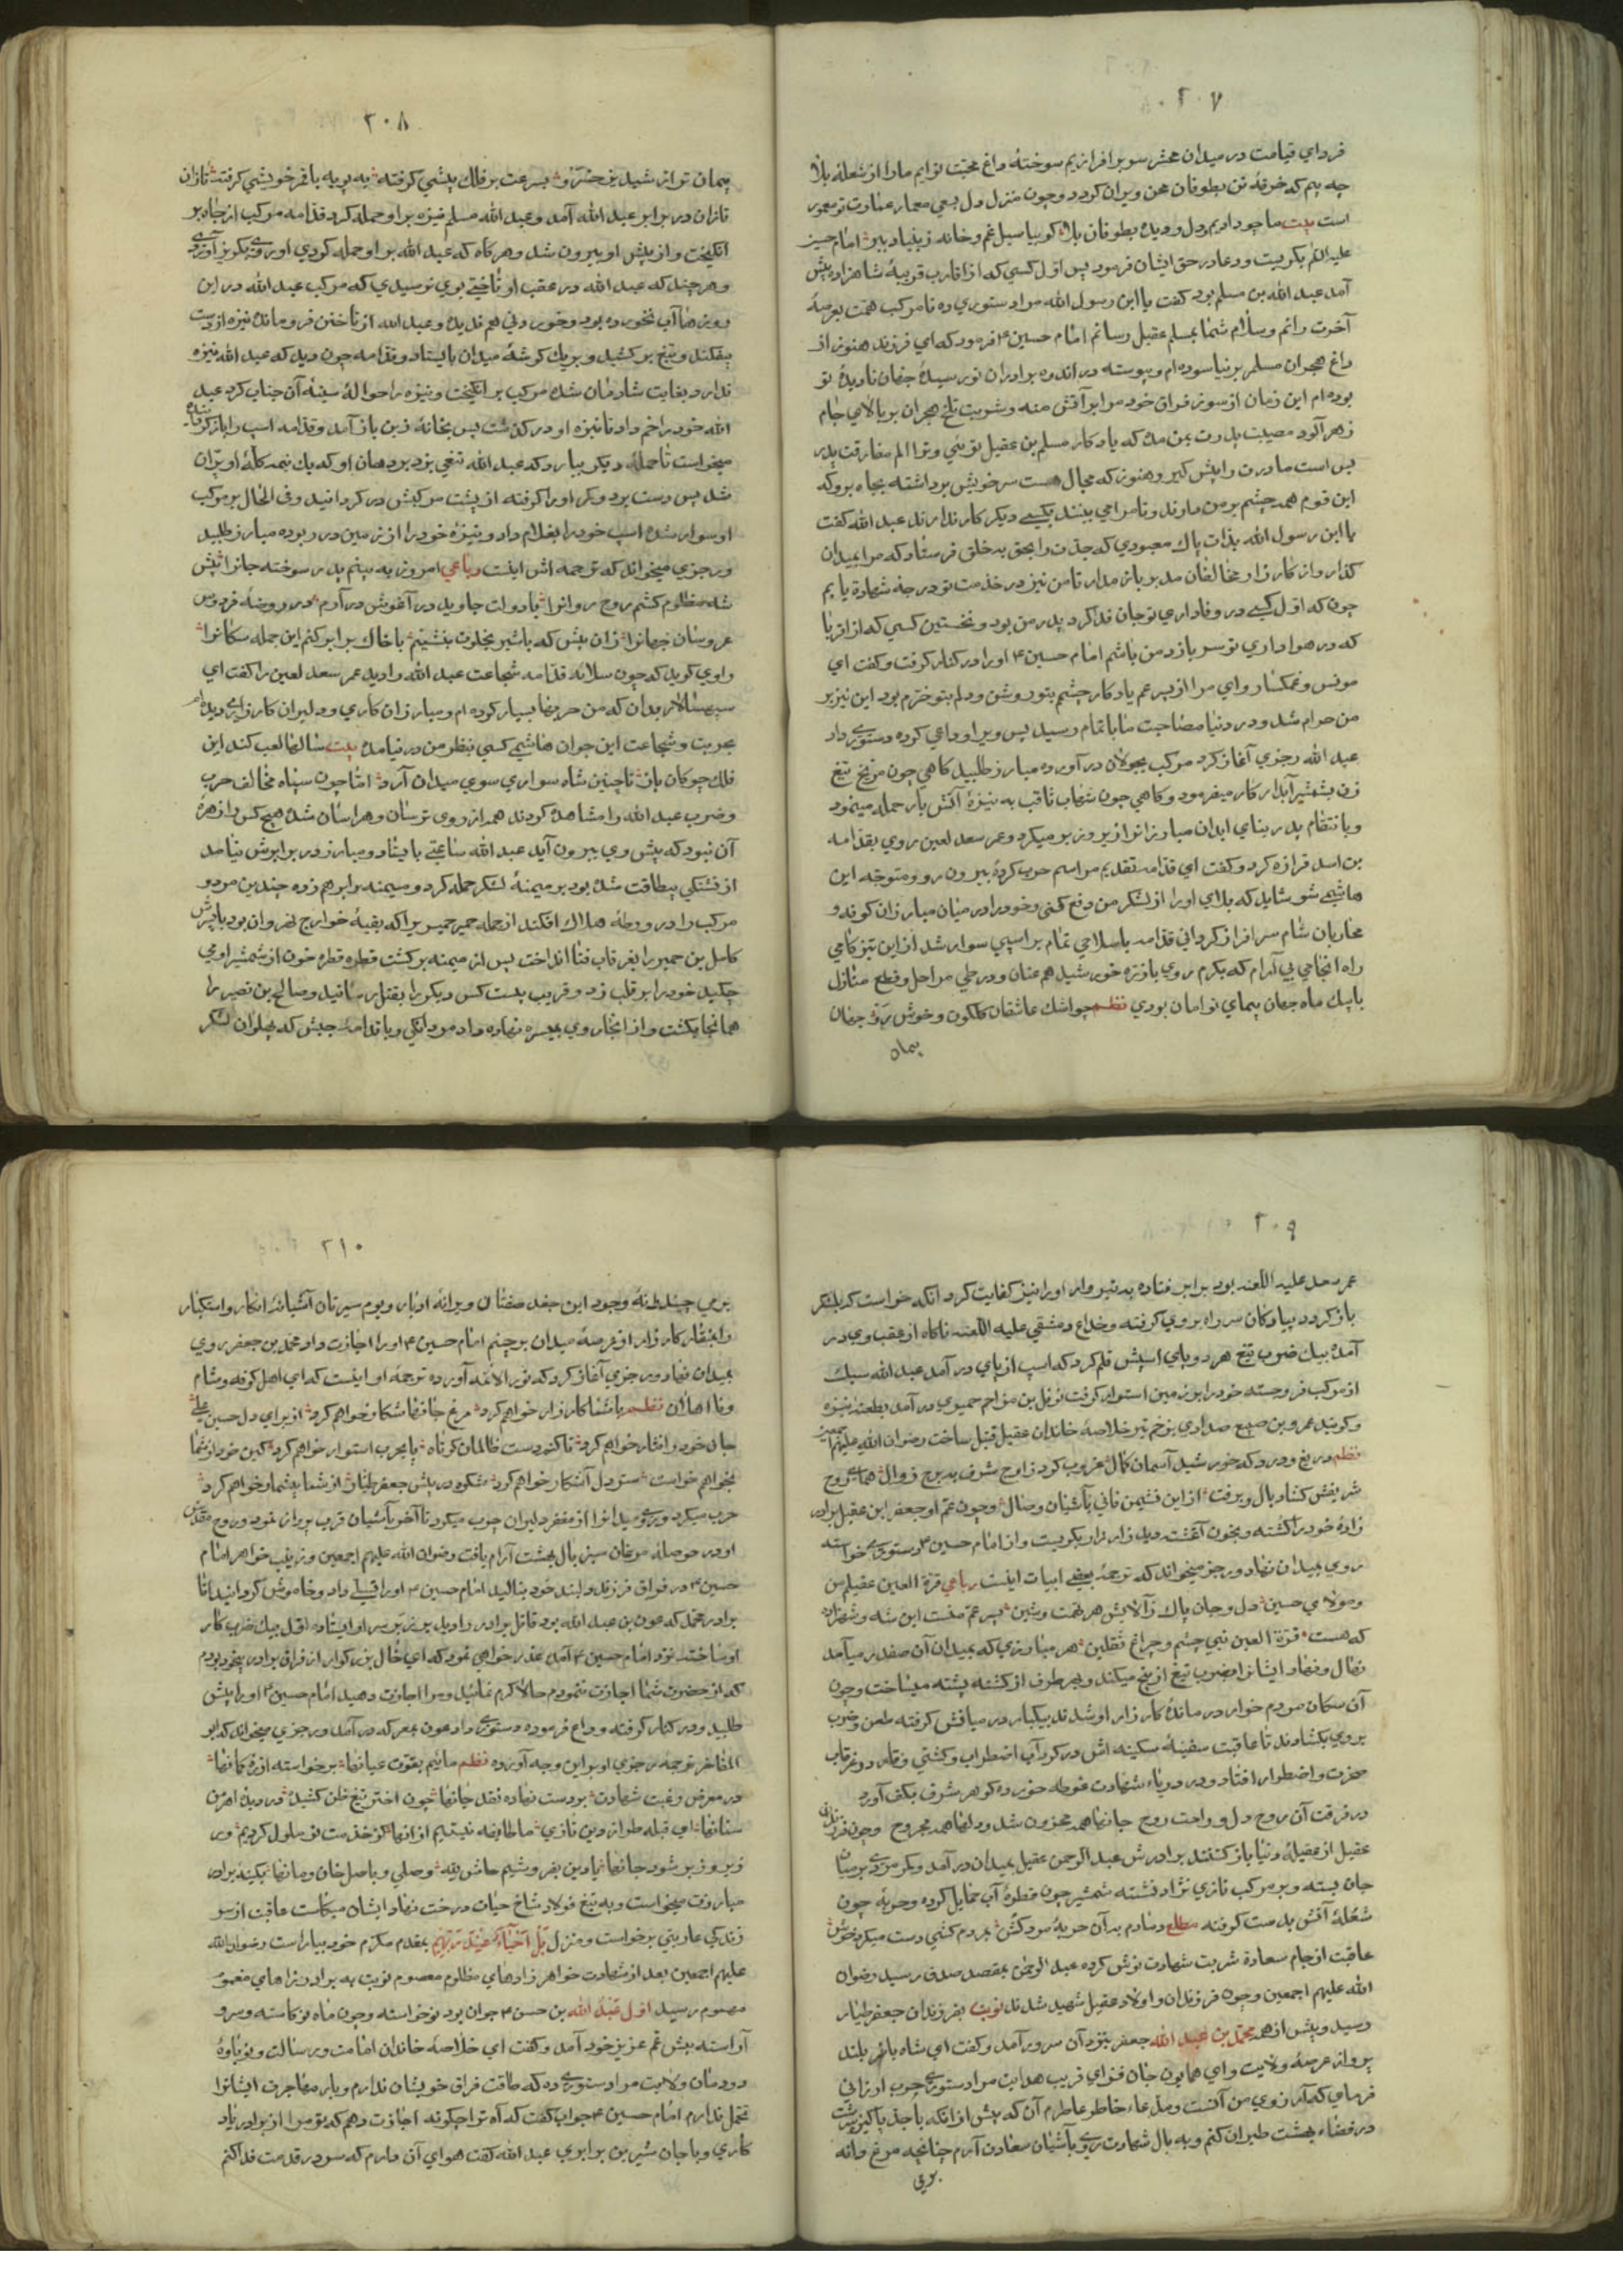 ۲۰۷
فردای قیامت در میدان محشر سر برافرازیم سوختهٔ داغ محبت توایم ما را از شعلهٔ بلا
چه بیم که خرقهٔ تن بطوفان محن ویران کردد و چون منزل دل بسعی معمار عنایت تو معمور
است بیت ما چو دادیم دل و دیده بطوفان بلا کو بیا سیل غم و خانه ز بنیاد ببر امام حسین
علیه السلم بکریست و دعا در حق ایشان فرمود پس اول کسی که از اقارب قریبهٔ شاهزاده پیش
آمد عبد الله بن مسلم بود کفت یا ابن رسول الله مرا دستوری ده تا مرکب همت بعرصهٔ
آخرت رانم و سلام شما بمسلم عقیل رسانم امام حسین ع فرمود که ای فرزند هنوز از
داغ هجران مسلم بر نیاسوده ام و پیوسته در اندوه برادران نورسیدهٔ جهان نادیدهٔ تو
بوده ام این زمان از سوز فراق خود مرا بر آتش منه و شربت تلخ هجران بر بالای جام
زهر آلود مصیبت پدرت بمن مده که یادکار مسلم بن عقیل توئی و ترا الم مفارقت پدر
بس است مادرت را پیش کیر و هنوز که مجال هست سر خویش برداشته بجاه برو که
این قوم همه چشم بر من دارند و تا مرا می بینند بکسی دیکر کار ندارند عبد الله کفت
یا ابن رسول الله بذات پاک معبودی که جدت را بحق بخلق فرستاد که مرا بمیدان
کذار و از کارزار مخالفان مدبر باز مدار تا من نیز در خدمت تو درجه شهادة یابم
چون که اول کسی در وفاداری تو جان فدا کرد پدر من بود و نخستین کسی که از اقربا
که در هواداری تو سر بازد من باشم امام حسین ع او را در کنار کرفت و کفت ای
مونس و غمکسار و ای مرا از پسر عم یادکار چشم بتو روشن و دلم بتو خرم بود این نیز بر
من حرام شد و در دنیا مصاحبت ما با تمام رسید پس ویرا وداعی کرده دستوری داد
عبد الله رجزی آغاز کرد مرکب بجولان در آورده مبارز طلبید کاهی چون مریخ تیغ
زن بشمشیر آبدار کار میفرمود و کاهی چون شهاب ثاقب به نیزهٔ آتش بار حمله مینمود
و بانتقام پدر بنای ابدان مبارزانرا زیر و زبر میکرد و عمر سعد لعین روی بقدامه
بن اسد فزازه کرد و کفت ای قدامه تقدیم مراسم حرب کرده بیرون رو و متوجه این
هاشمی شو شاید که بلای او را از لشکر من دفع کنی و خود را در میان مبارزان کوفه و
محاربان شام سرافراز کردانی قدامه با سلاحی تمام بر اسپی سوار شد از این تیز کامی
راه انجامی بی آرام که بکرم روی با ذره خورشید هم عنان و در طی مراحل و قطع منازل
با پیک ماه جهان پیمای توامان بودی نظم چو اشک عاشقان کلکون و خوش رو جهان
پیمان
۲۰۸
پیمان تر از شیدیز خسرو بسرعت بر فلک پیشی کرفته به پویه باغر خویشی کرفته تازان
تازان در برابر عبد الله آمد و عبد الله مسلم نیزه برو حمله کرد قدامه مرکب از جاه بر
انکیخت و از پیش او بیرون شد و هر کاه که عبد الله برو حمله کردی او روی بکریز آوردی
و هر چند که عبد الله در عقب او تاختی بوی نرسیدی که مرکب عبد الله در این
روزها آب نخورده بود و خوردنی هم ندیده و عبد الله از تاختن فرو ماند نیزه از دست
بیفکند و تیغ برکشید و بر یک کوشهٔ میدان بایستاد و قدامه چون دید که عبد الله نیزه
ندارد بغایت شادمان شده مرکب برانکیخت و نیزه را حوالهٔ سینه آن جناب کرد عبد
الله خود را خم داد تا نیزه او در کذشت پس بخانهٔ زین باز آمد و قدامه اسپ را باز کردانیده
میخواست تا حملهٔ دیکر بیارد که عبد الله تیغی بزد بر دهان او که یک نیمه کلهٔ او پران
شد پس دست برد و کمر او را کرفته از پشت مرکبش در کردانید و فی الحال بر مرکب
او سوار شده اسپ خود را بغلام داد و نیزهٔ خود را از زمین در ربوده مبارز طلبید
و رجزی میخواند که ترجمه اش اینست رباعی امروز به بینم پدر سوخته جانرا پیش
شه مظلوم کشم روح روانرا با دولت جاوید در آغوش در آرم در روضه فردوس
عروسان جهانرا زان پیش که با شیر بخلوت بنشینم با خاک برابر کنم این جمله سکانرا
راوی کوید که چون سلامه قدامه شجاعت عبد الله را دید عمر سعد لعین را کفت ای
سپهسالار بدان که من حربها بسیار کرده ام و مبارزان کاری و دلیران کارزاری دیده ام
بحریت و شجاعت این جوان هاشمی کسی بنظر من در نیامده بیت سالها لعب کند این
فلک چوکان باز تا چنین شاه سواری سوی میدان آرد امّا چون سپاه مخالف حرب
و ضرب عبد الله را مشاهده کردند همه از روی ترسان و هراسان شده هیچ کس را زهرهٔ
آن نبود که پیش وی بیرون آید عبد الله ساعتی بایستاد و مبارز در برابرش نیامد
از تشنکی بیطاقت شده بود بر میمنهٔ لشکر حمله کرد و میمنه را بر هم زده چندین مرد و
مرکب را در ورطهٔ هلاک افکند از جمله حمیر حمیری را که بقیهٔ خوارج نهروان بود با پسرش
کامل بن حمیر را بغرقاب فنا انداخت پس از میمنه برکشت قطره قطره خون از شمشیر او می
چکید خود را بر قلب زد و قریب بیست کس دیکر را بقتل رسانید و صالح بن نصیر را
همانجا بکشت و از انجا روی بمیسره نهاده داد مردانکی داد با قدامهٔ جیش که پهلوان لشکر
۲۰۹
عمر سعد علیه اللعنه بود برابر فتاده به تبر وار او را نیز کفایت کرد انکه خواست که بلشکر
باز کردد پیادکان سر راه بروی کرفته و خداع دمشقی علیه اللعنه ناکاه از عقب وی در
آمده بیک ضرب تیغ هر دو پای اسپش قلم کرد که اسپ از پای در آمد عبد الله سبک
از مرکب فرو جسته خود را بر زمین استوار کرفت نوفل بن مزاحم حمیری در آمد بطعنه نیزه
و کویند عمرو بن صبیح صدادی بزخم تیر خلاصهٔ خاندان عقیل قتیل ساخت رضوان الله علیهم اجمعین
نظم دریغ و درد که خورشید آسمان کمال غروب کرد ز اوج شرف به برج زوال همای روح
شریفش کشاد بال و برفت از این نشیمن فانی بآشیان وصال و چون عم او جعفر ابن عقیل برادر
زادهٔ خود را کشته و بخون آغشته دید زار زار بکریست و از امام حسین ع دستوری خواسته
روی بمیدان نهاد و رجز میخواند که ترجمهٔ بعضی ابیات اینست رباعی قرة العین عقیلم من
و مولای حسین دل و جان پاک ز آلایش هر تهمت و شین پسر عمّ منست این شه و شهزاده
که هست قرة العین نبی چشم و چراغ ثقلین هر مبارزی که بمیدان آن صفدر میآمد
نهال و نهاد ایشانرا بضرب تیغ از بیخ میکند و بهر طرف از کشته پشته میساخت و چون
آن سکان مردم خوار در ماندهٔ کارزار او شدند بیکبار در میانش کرفته طعن و ضرب
بروی بکشادند تا عاقبت سفینهٔ سکینه اش در کرداب اضطراب و کشتی وقار در غرقاب
حیرت و اضطرار افتاد و در دریاء شهادت غوطه خورده کوهر شرف بکف آورد
در فرقت آن روح دل و راحت روح جانها همه محزون شد و دلها همه مجروح و چون فرزندان
عقیل از عقیلهٔ دنیا باز کشتند برادرش عبد الرحمن عقیل بمیدان در آمد و کمر مردی بر میان
جان بسته و بر مرکب تازی نژاد نشسته شمشیر چون قطرهٔ آب حمایل کرده و حربهٔ چون
شعلهٔ آتش بدست کرفته مطلع دمادم به آن حربهٔ مرد کش بمردم کشی دست میکرد خوش
عاقبت از جام سعادة شربت شهادت نوش کرده عبد الرحمن بمقصد صدق رسید رضوان
الله علیهم اجمعین و چون فرزندان و اولاد عقیل شهید شدند نوبت بفرزندان جعفر طیار
رسید و پیش از همه محمد بن عبد الله جعفر بنزد آن سرور آمد و کفت ای شاه باز بلند
پرواز عرصهٔ ولایت و ای همایون جان فزای قریب هدایت مرا دستوری حرب ارزانی
فرمای که آرزوی من آنست و مدعاء خاطر عاطرم آن که پیش از آنکه با جد پاکیزه سرشت
در فضاء بهشت طیران کنم و به بال شهادت روی بآشیان سعادت آرم چنانچه مرغ دانه
برمی
۲۱۰
برمی چیند دانهٔ وجود این جغد صفتان ویرانه ادبار و بوم سیرتان آشیانهٔ انکار و استکبار
را بمنقار کارزار از عرصهٔ میدان بر چینم امام حسین ع او را اجازت داد محمد بن جعفر روی
بمیدان نهاد و رجزی آغاز کرد که نور الائمه آورده ترجمهٔ او اینست که ای اهل کوفه و شام
و نا اهلان نظم با شما کارزار خواهم کرد مرغ جانها شکار خواهم کرد از برای دل حسین علی
جان خود را نثار خواهم کرد تا کنم دست ظالمان کوتاه پا بحرب استوار خواهم کرد کین خود از شما
بخواهم خواست ستر دل آشکار خواهم کرد شکوه در پیش جعفر طیار از شما بیشمار خواهم کرد
حرب میکرد و روی میدانرا از مغفر دلیران چوب میکرد تا آخر بآشیان قرب پرواز نمود و روح مقدس
او در حوصلهٔ مرغان سبز بال بهشت آرام یافت رضوان الله علیهم اجمعین و زینب خواهر امام
حسین ع در فراق فرزند دلبند خود بنالید امام حسین ع او را تسلی داد و خاموش کردانید اما
برادر محمد که عون بن عبد الله بود قاتل برادر را دید بر زبر سر او ایستاده اوّل بیک ضرب کار
او ساخت نزد امام حسین ع آمد عذر خواهی نمود که ای خال بزرکوار از فراق برادر بیخود بودم
که از حضرت شما اجازت ننمودم حالا کرم نمائید و مرا اجازت دهید امام حسین ع او را پیش
طلبید و در کنار کرفته وداع فرموده دستوری داد عون بمعرکه در آمد و رجزی میخواند که ابو
المفاخر ترجمه رجزی او بر این وجه آورده نظم مائیم بقوّت عیانها برخواسته از ره کمانها
در معرض رغبت شهادت بر دست نهاده نقد جانها چون اختر تیغ ظن کشیده در دیدهٔ اهرمن
سنانها ای قبله طراز دین تازی ما طایفه نیستیم از انها کز خدمت تو ملول کردیم ور
زیر و زبر شود جانها یا دین بفروشیم حاش لله وصلی و باصل خان و مانها بکینهٔ برادر
مبارزت میخواست و به تیغ فولاد شاخ حیات درخت نهاد ایشان میکاست عاقبت از سر
زندکی عاریتی برخواست و منزل بَلْ اَحْیَاءٌ عِنْدَ رَبِّهِمْ بمقدم مکرّم خود بیاراست رضوان الله
علیهم اجمعین بعد از شهادت خواهر زادهای مظلوم معصوم نوبت به برادر زاهای مغموم
مهموم رسید اوّل عبد الله بن حسن ع جوان بود نوخواسته و چون ماه نو کاسته و سرو
آراسته پیش عمّ عزیز خود آمد و کفت ای خلاصهٔ خاندان امامت و رسالت و نوباوهٔ
دودمان ولایت مرا دستوری ده که طاقت فراق خویشان ندارم و بار مهاجرت ایشانرا
تحمل ندارم امام حسین ع جواب کفت که آه ترا چکونه اجازت دهم که تو مرا از برادر یاد
کاری و با جان شیرین برابری عبد الله کفت هوای آن دارم که سر در قدمت فدا کنم